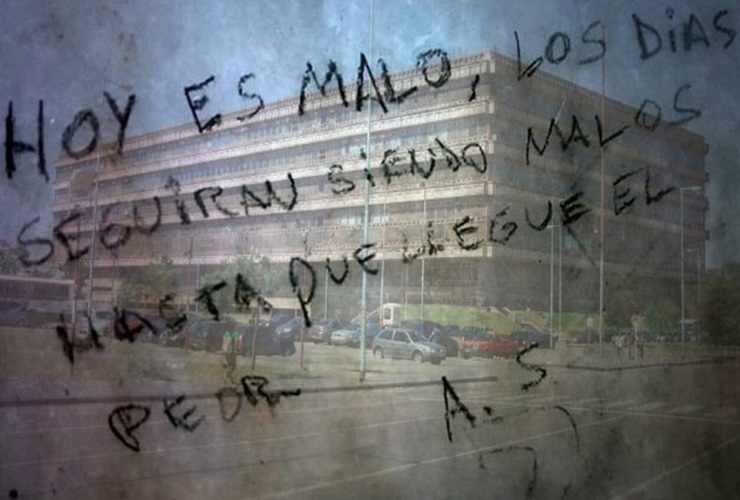 HOY ES MALO, LOS DÍAS
SEGUIRAN SIENDO MALOS
HASTA QUE LLEGUE EL
PEOR A. S